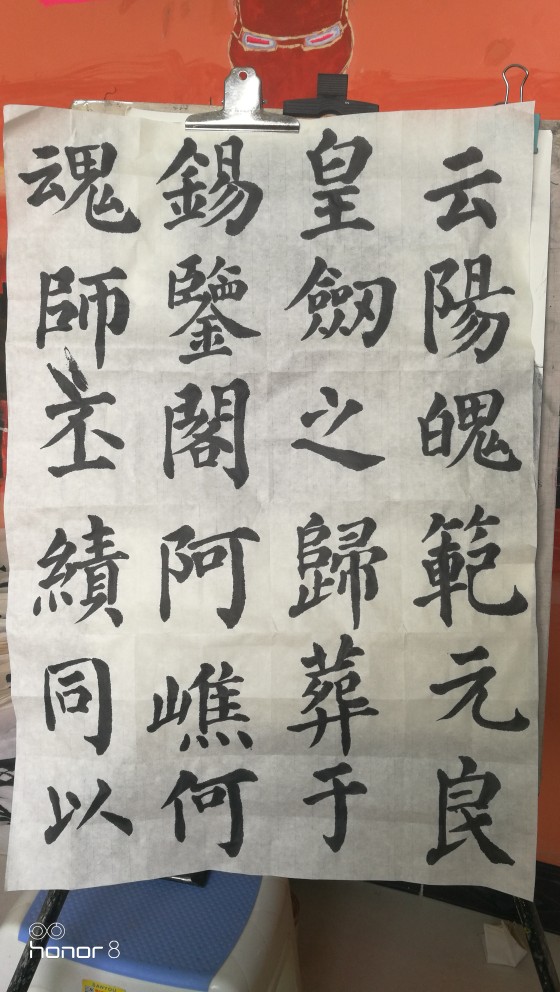 云陽魄範元良
皇劔之歸葬于
錫鑒閣阿嶕何
魂師丕績同以
honor 8